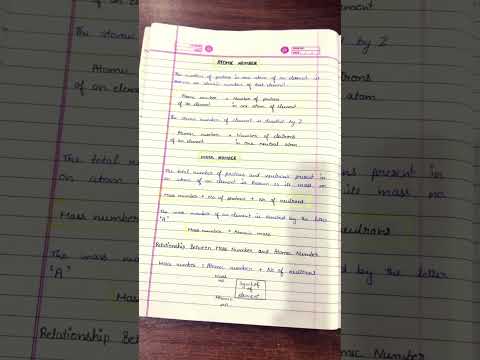 ATOMIC NUMBER
The number of protons in one atom of an element is
known as atomic number of that element
Atomic number = Number of protons
of an element in one atom of element
The atomic number of element is denoted by Z
Atomic number = Number of electrons
of an element in one neutral atom
MASS NUMBER
The total number of protons and neutrons present in
an atom of an element is known is its mass no
Mass number = No of protons + No of neutrons
The mass number of an element is denoted by the letter
'A'
Mass number = Atomic mass
Relationship Between Mass Number and Atomic Number
Mass number = Atomic number + No of neutrons
Mass
no
Symbol
of
element
Atomic
no